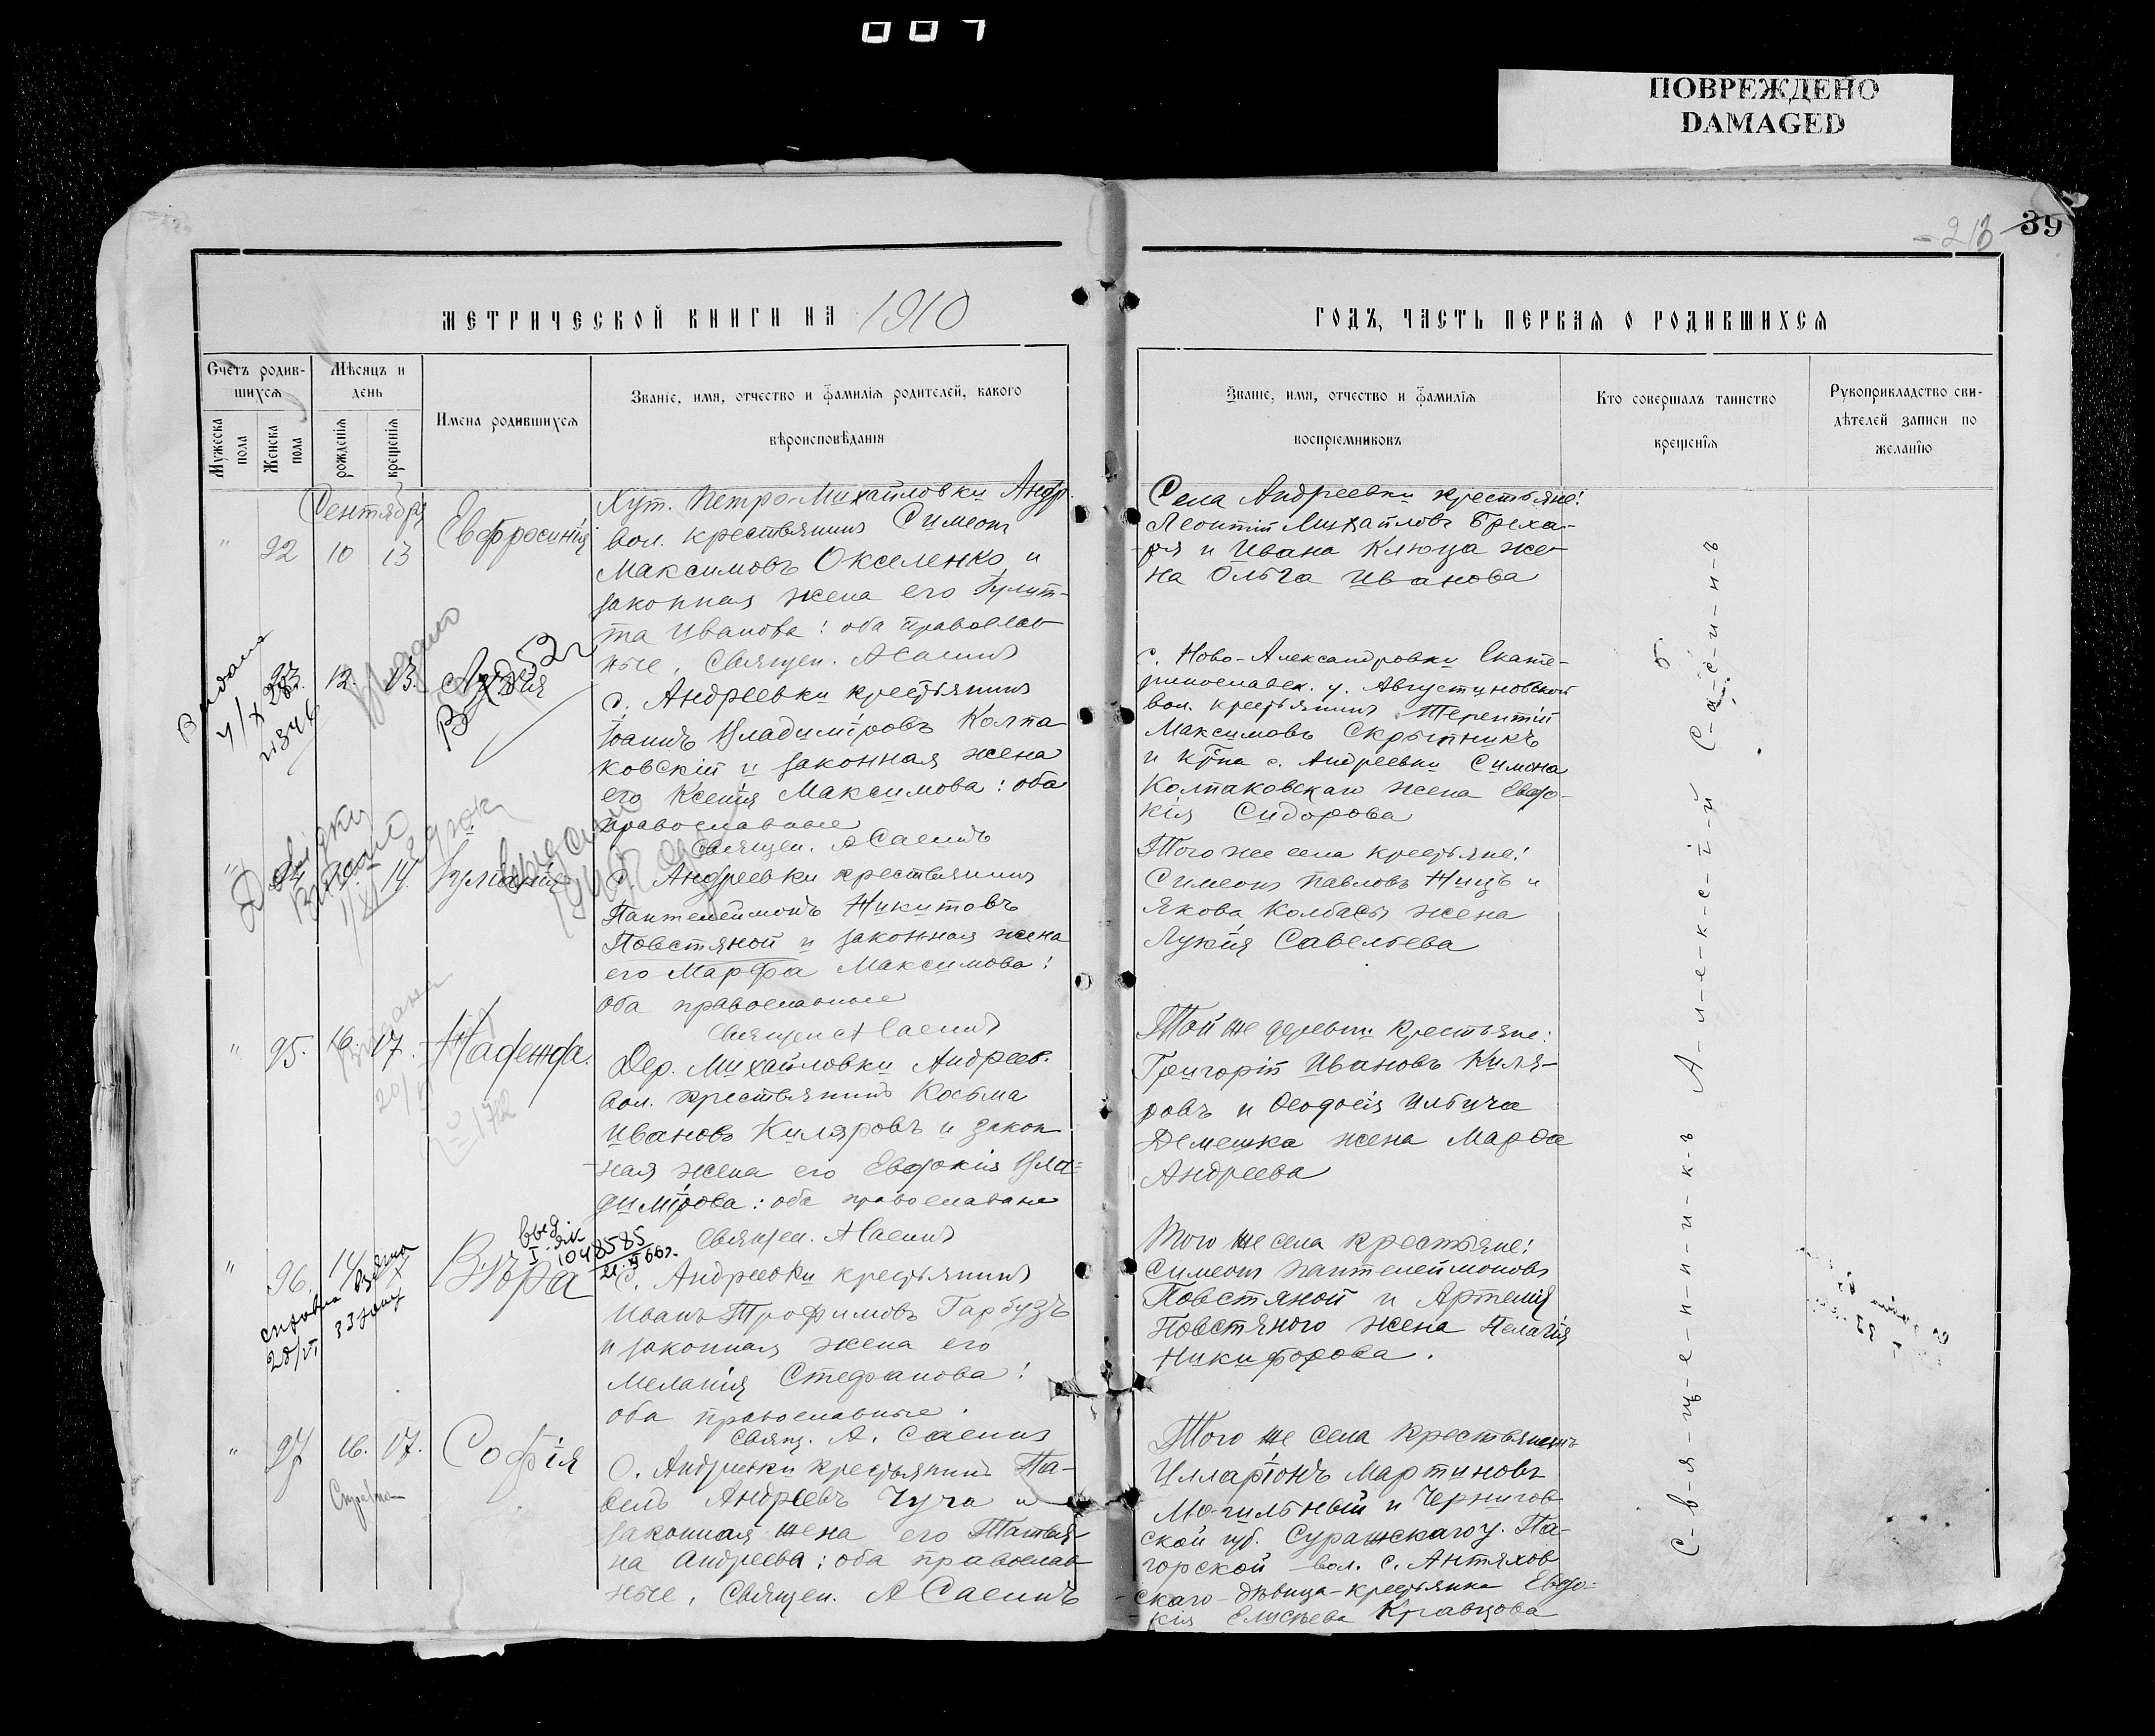 007
ПОВРЕЖДЕНО
DAMAGED
213 39
МЕТРИЧЕСКОЙ КНИГИ НА 1910
ГОДЪ, ЧАСТЬ ПЕРВАЯ О РОДИВШИХСЯ
Счетъ родив-
шихся
Мужеска
пола
Женска
пола
Мѣсяцъ и
день
рожденія
крещенія
Имена родившихся
Званіе, имя, отчество и фамилія родителей, какого
вѣроисповѣданія
Званіе, имя, отчество и фамилія
воспріемниковъ
Кто совершалъ таинство
крещенія
Рукоприкладство сви-
дѣтелей записи по
желанію
Сентябрь
" 92 10 13 Евфросинія
Хут. Петро-Михайловки Андр.
вол. крестьянинъ Симеонъ
Максимовъ Окселенко и
законная жена его Іулит-
та Иванова: оба православ-
ные. Священ. А Саенинъ
Села Андреевки крестьяне:
Леонтій Михайловъ Бреха-
ря и Ивана Клюца же-
на Ольга Иванова
93. 12. 13.
Выдано
с. Андреевки крестьянинъ
Іоаннъ Владиміровъ Колпа-
ковскій и законная жена
его Ксенія Максимова: оба
православные
Священ. А Саенинъ
с. Ново-Александровки Екате-
ринославск. у. Августиновской
вол. крестьянинъ Терентій
Максимовъ Скрыпникъ
и кр-на с. Андреевки Симона
Колпаковскаго жена Евдо-
кія Сидорова
" 94 14. Іуліанія
Довідку
Видано
с. Андреевки крестьянинъ
Пантелеймонъ Никитовъ
Повстяной и законная жена
его Марфа Максимова:
оба православные
Священ. А Саенинъ
Того же села крестьяне:
Симеонъ Павловъ Ницъ и
Якова Колбасы жена
Лукія Савельева
" 95. 16. 17. Надежда.
Дер. Михайловки Андреев.
вол. крестьянинъ Косьма
Ивановъ Киляровъ и закон-
ная жена его Евдокія Вла-
димірова: оба православные
Священ. А Саенинъ
Той же деревни крестьяне:
Григорій Ивановъ Киля-
ровъ и Ѳеодосія Ильича
Демешка жена Марѳа
Андреева
" 96. 14 Вѣра
1048585
с. Андреевки крестьянинъ
Иванъ Трофимовъ Гарбузъ
и законная жена его
Меланія Стефанова:
оба православные.
Свящ. А. Саенинъ
Того же села крестьяне:
Симеонъ Пантелеймоновъ
Повстяной и Артемія
Повстяного жена Пелагія
Никифорова.
" 97 16. 17. София
с. Андреевки крестьянинъ Па-
велъ Андреевъ Чуча и
законная жена его Татья-
на Андреева: оба православ-
ные. Священ. А Саенинъ
Того же села крестьянинъ
Илларіонъ Мартиновъ
Могильный и Чернигов-
ской губ. Суражскаго у. Па-
горской вол. с. Антяхов-
скаго дѣвица-крестьянка Евдо-
кія Елисѣева Кравцова
С-в-я-щ-е-н-н-и-к-ъ А-л-е-к-с-і-й С-а-е-н-и-н-ъ